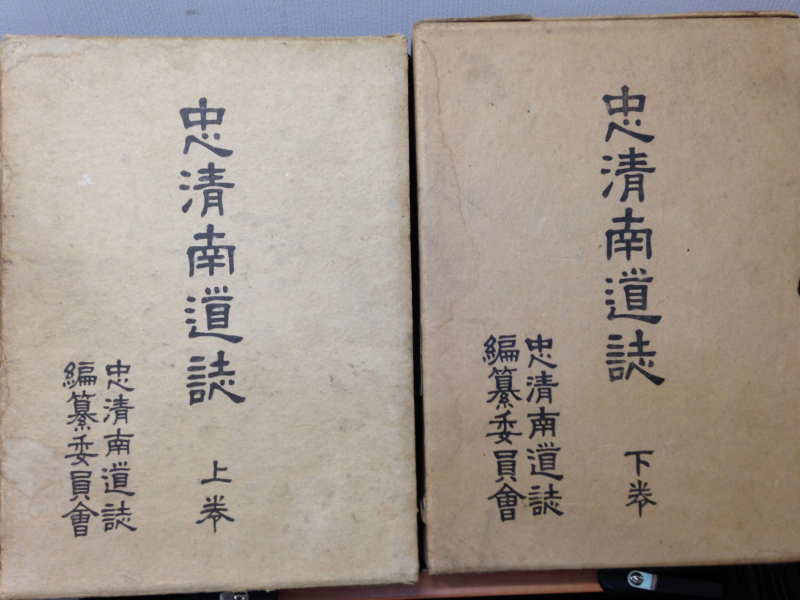 忠清南道誌
上卷
忠清南道誌
編纂委員會
忠清南道誌
下卷
忠清南道誌
編纂委員會